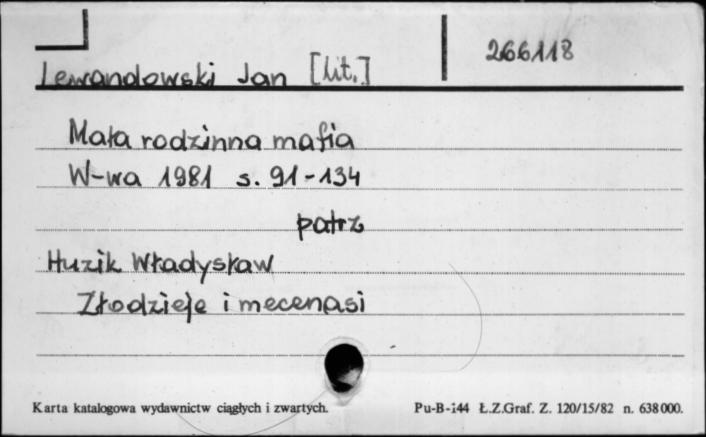 266118
Lewandowski Jan [lit.]
Mała rodzinna mafia
W-wa 1981 s. 91-134
patrz
Huzik Władysław
Złodzieje i mecenasi
Karta katalogowa wydawnictw ciągłych i zwartych. Pu-B-144 Ł.Z.Graf. Z. 120/15/82 n. 638000.